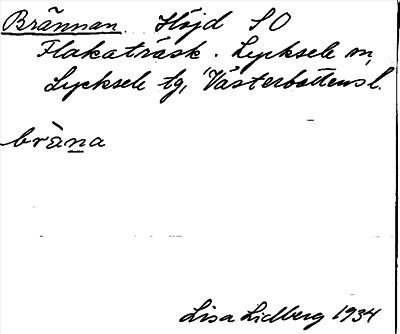 Brännan. Höjd S O
Flakaträsk. Lycksele m,
Lycksele tg, Västerbottens l.
bràna
Lisa Lidberg 1934